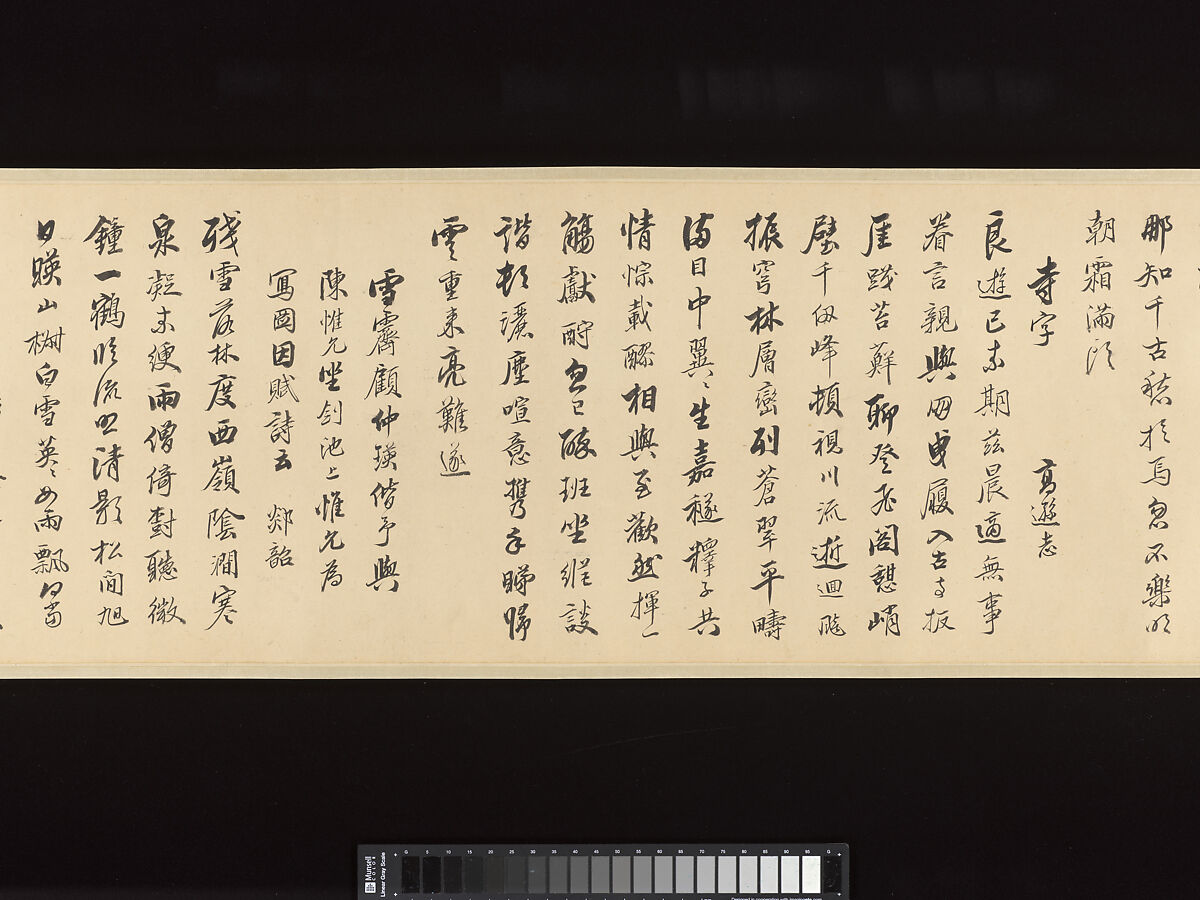 那知千古愁於焉忽不樂明
朝霜滿須
寺字 高遜志
良遊已有期茲晨適無事
眷言親與朋曳履入古寺扳
崖踐苔蘚聊登飛閣憩峭
壁千仞峰頓視川流逝迴飈
振穹林層巒列蒼翠平疇
滿目中翼〻生嘉穟釋子共
情悰載醪相與至歡然揮一
觴獻酧忽已酥班坐縱談
諧軒灑塵喧意攜手睇歸
雲重來亮難遂
雪霽顧仲瑛偕予與
陳惟允坐劍池上惟允為
寫圖因賦詩云 郯韶
殘雪落林度西嶺陰澗寒
泉凝未綆雨僧倚對聽微
鐘一鶴臨流照清影松間旭
日暎山樹白雪英〻如雨飄